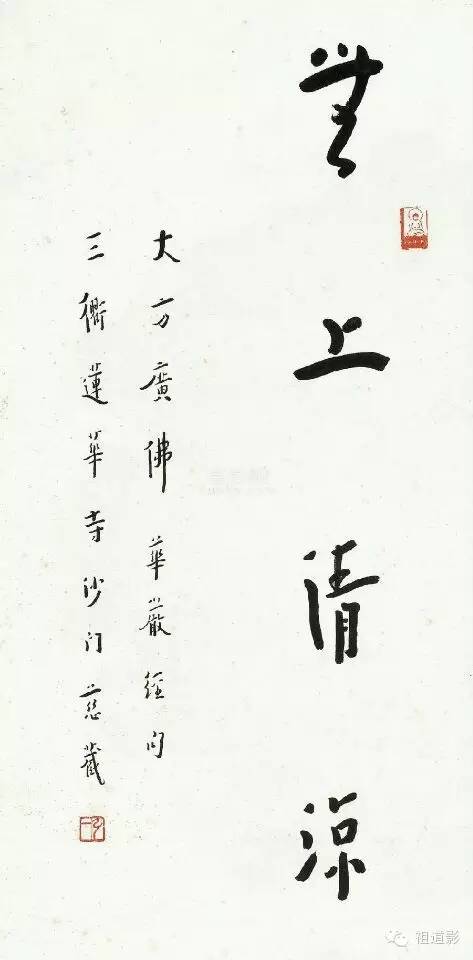 無上清涼
大方廣佛華嚴經句
三衢蓮華寺沙门慈藏
祖道影